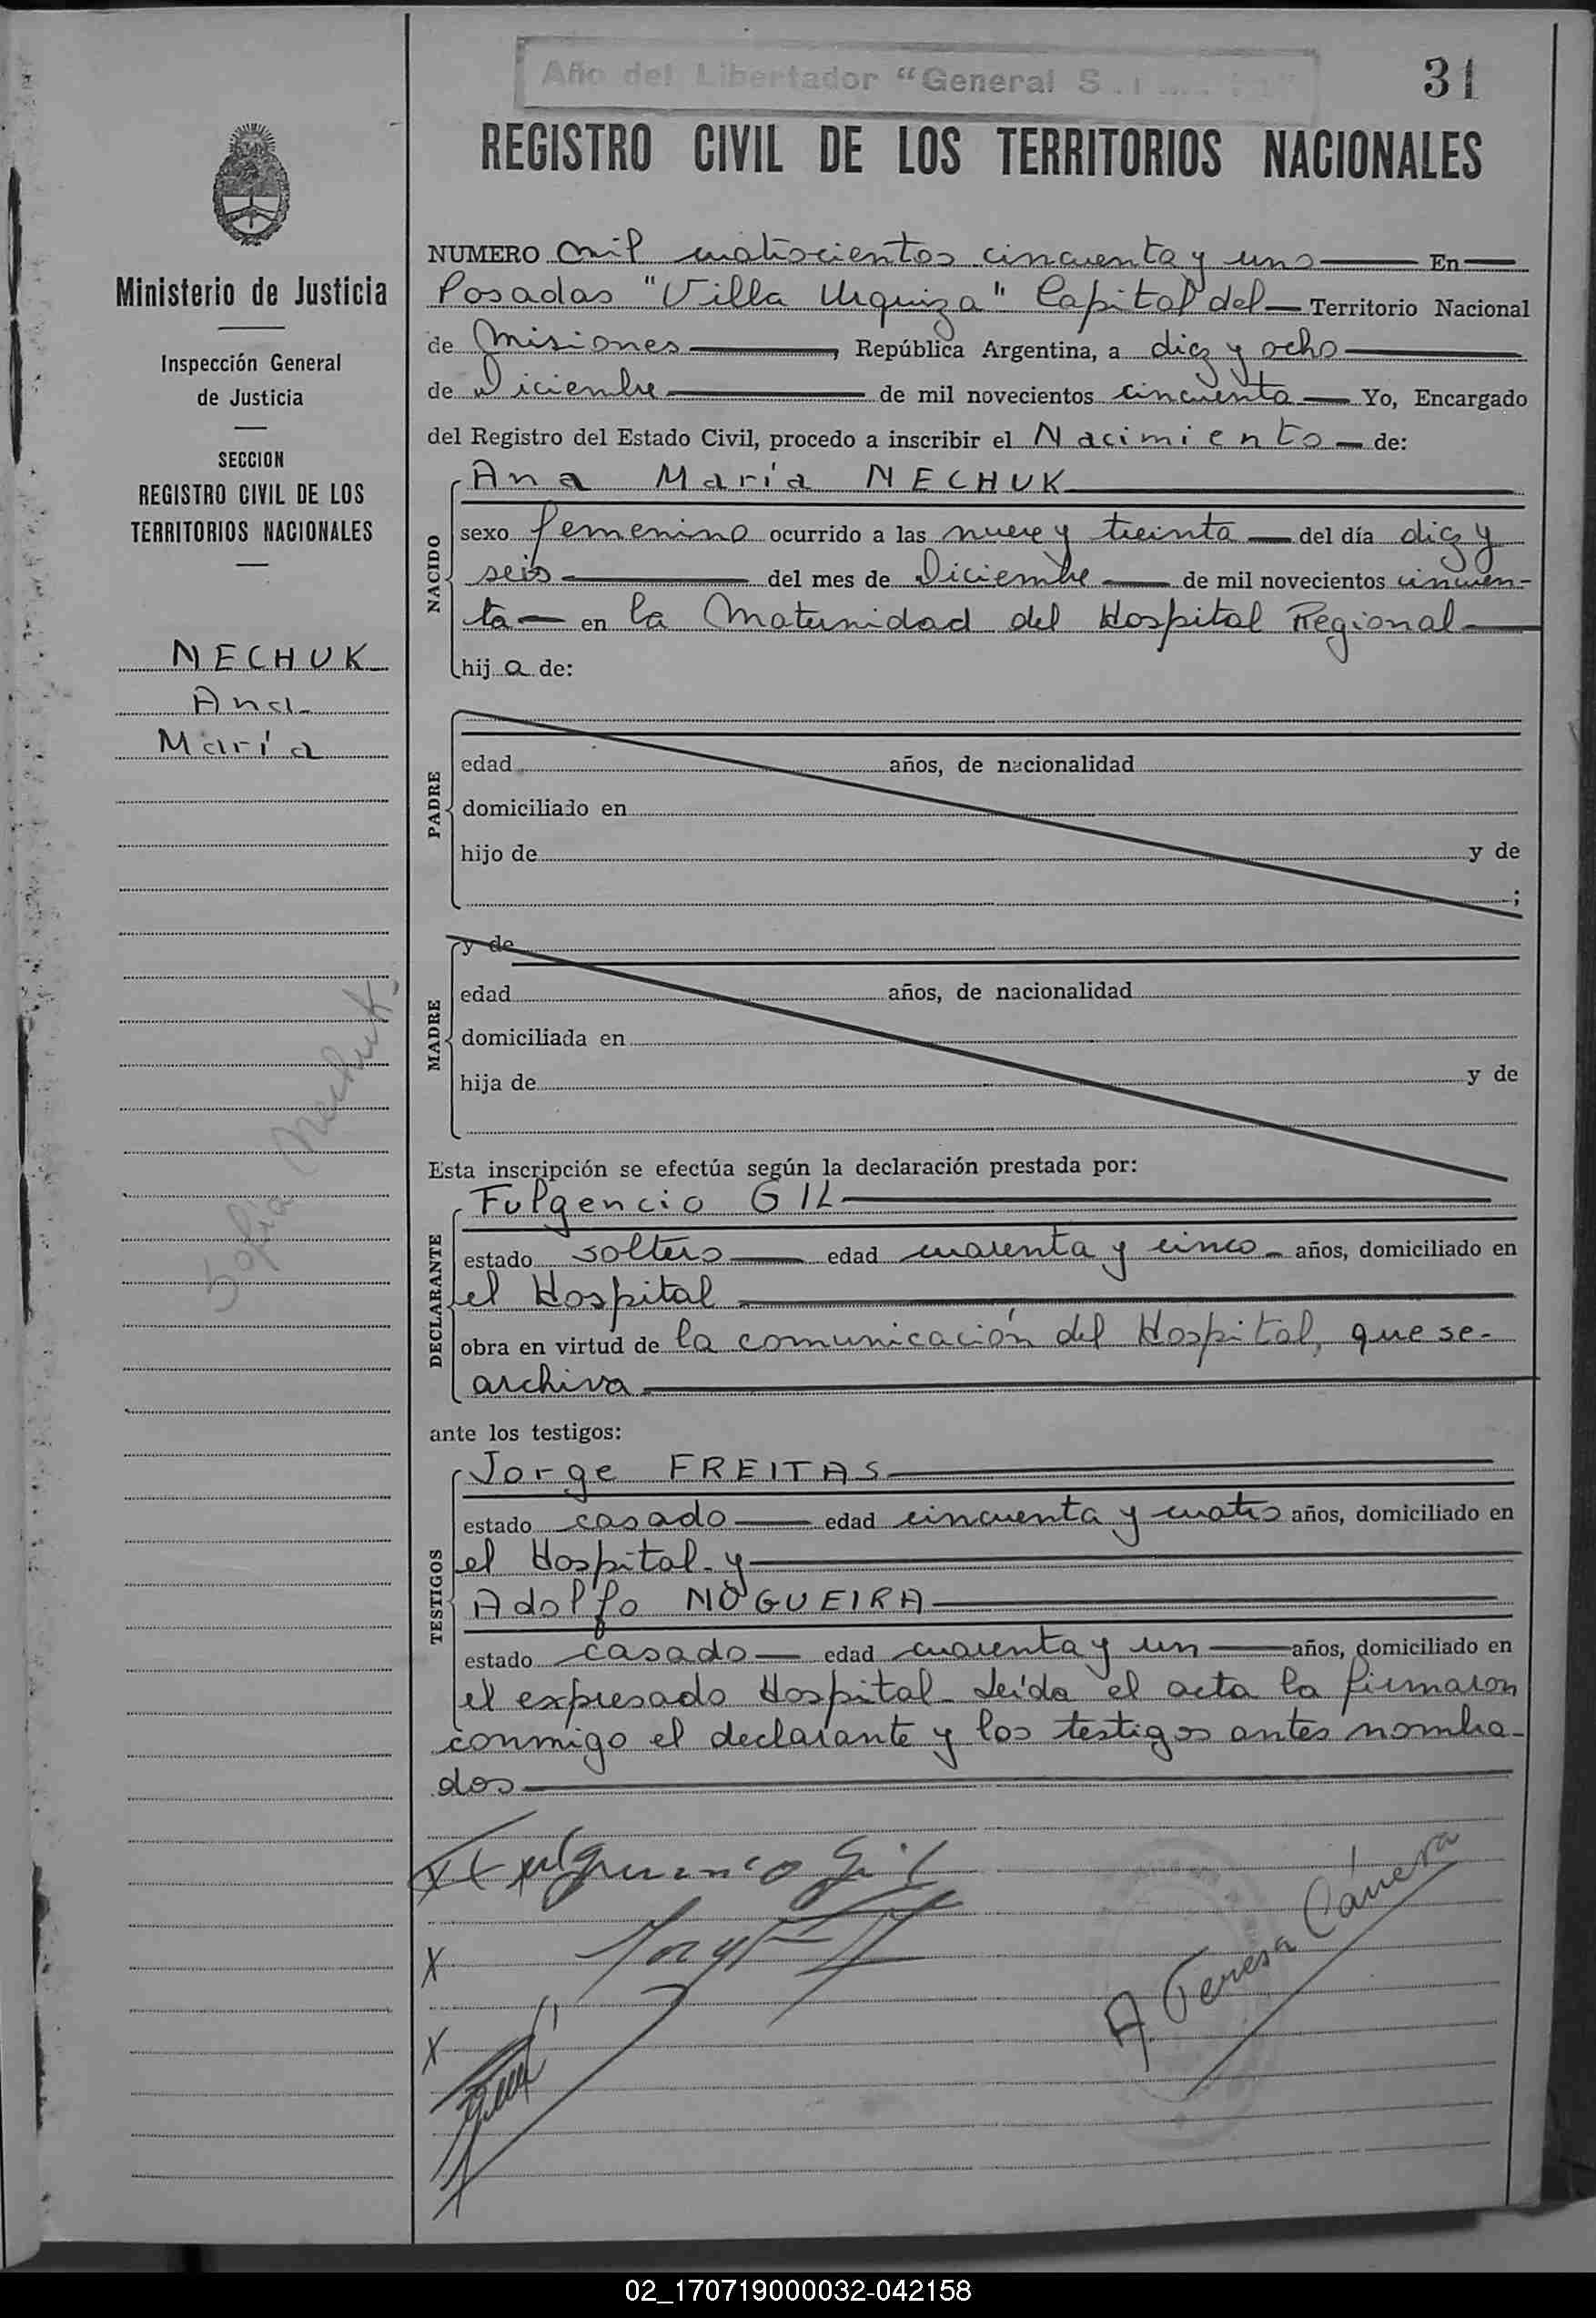 Año del Libertador "General S
31
REGISTRO CIVIL DE LOS TERRITORIOS NACIONALES
Ministerio de Justicia
Inspección General
de Justicia
SECCION
REGISTRO CIVIL DE LOS
TERRITORIOS NACIONALES
NECHUK
Ana
María
Sofia Nechuk
NUMERO mil cuatrocientos cincuenta y uno En
Posadas "Villa Urquiza" Capital del Territorio Nacional
de Misiones, República Argentina, a diez y ocho
de Diciembre de mil novecientos cincuenta Yo, Encargado
del Registro del Estado Civil, procedo a inscribir el Nacimiento de:
NACIDO
Ana María NECHUK
sexo femenino ocurrido a las nueve y treinta del día diez y
seis del mes de Diciembre de mil novecientos cincuen-
ta en la Maternidad del Hospital Regional
hij a de:
PADRE
edad años, de nacionalidad
domiciliado en
hijo de y de
;
MADRE
y de
edad años, de nacionalidad
domiciliada en
hija de y de
Esta inscripción se efectúa según la declaración prestada por:
DECLARANTE
Fulgencio GIL
estado soltero edad cuarenta y cinco años, domiciliado en
el Hospital
obra en virtud de la comunicación del Hospital, que se
archiva
ante los testigos:
TESTIGOS
Jorge FREITAS
estado casado edad cincuenta y cuatro años, domiciliado en
el Hospital y
Adolfo NOGUEIRA
estado casado edad cuarenta y un años, domiciliado en
el expresado Hospital. Leída el acta la firmaron
conmigo el declarante y los testigos antes nombra-
dos
X Fulguencio Gil
X
X
A. Teresa Cánera
02_170719000032-042158